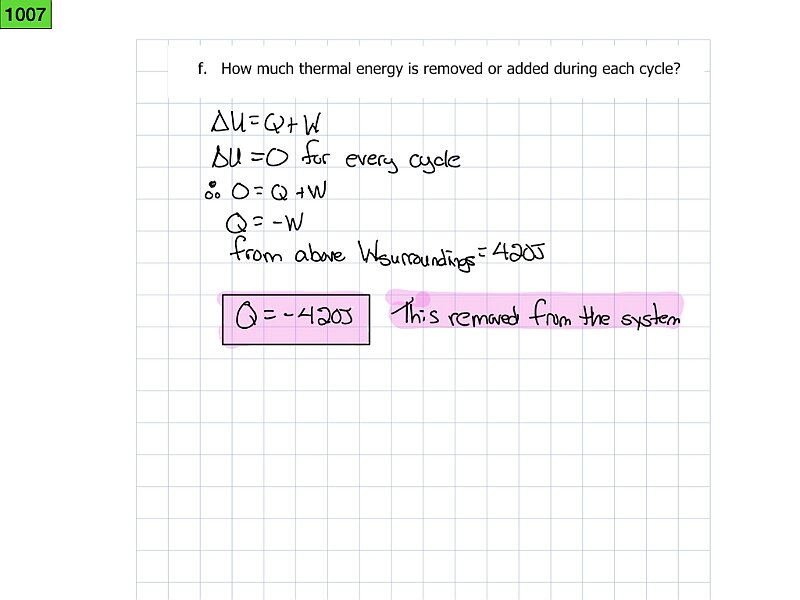 1007
f. How much thermal energy is removed or added during each cycle?
ΔU = Q + W
ΔU = 0 for every cycle
∴ 0 = Q + W
Q = -W
from above Wsurroundings = 420J
Q = -420J This removed from the system